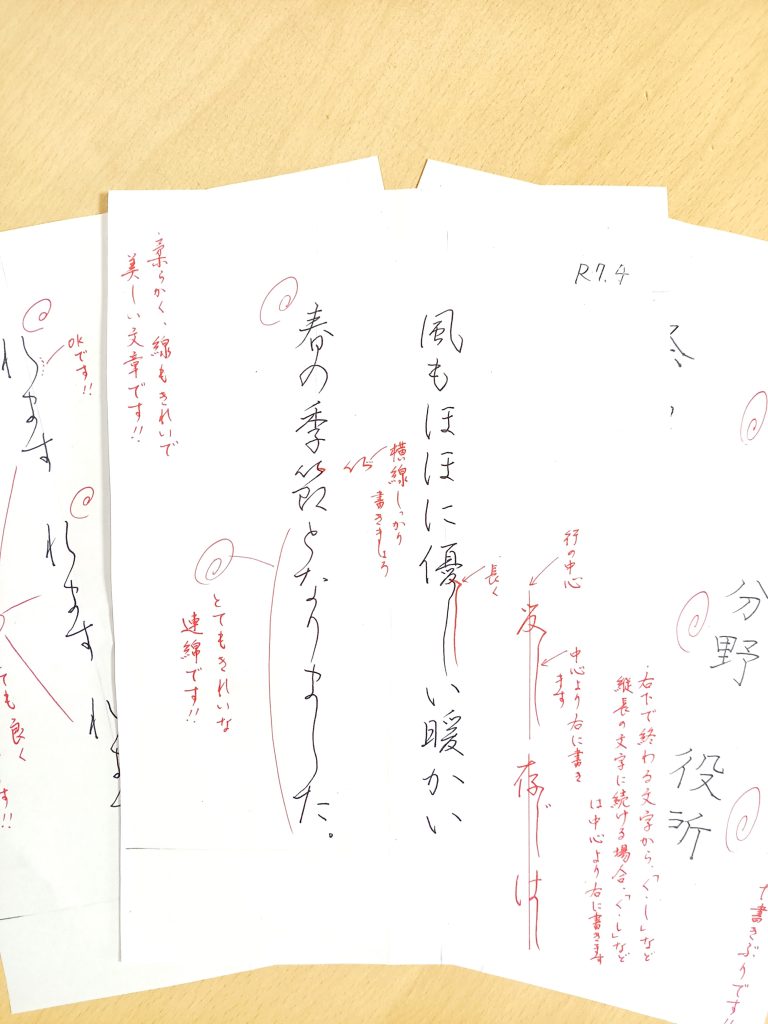 R7.4
風もほほに優しい暖かい
春の季節となりました。
行の中心
長く
中心より右に書き
ます
存じ
は
・右下で終わる文字から、「く・し」など
縦長の文字に続ける場合、「く・し」など
は中心より右に書きます
横線しっかり
書きましょう
とてもきれいな
連綿です!!
・柔らかく、線もきれいで
美しい文章です!!
OKです!!
ます
ます
ても良く
す!!
分野
役所
書きぶりです!!